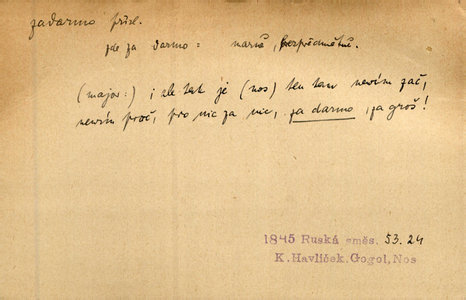 zadarmo přísl.
jde za darmo: marně, bezpředmětně.
(major:) i ale tak je (nos) ten tam nevím zač,
nevím proč, pro nic za nic, za darmo, za groš!
1845 Ruská směs. 53.24
K. Havlíček. Gogol, Nos